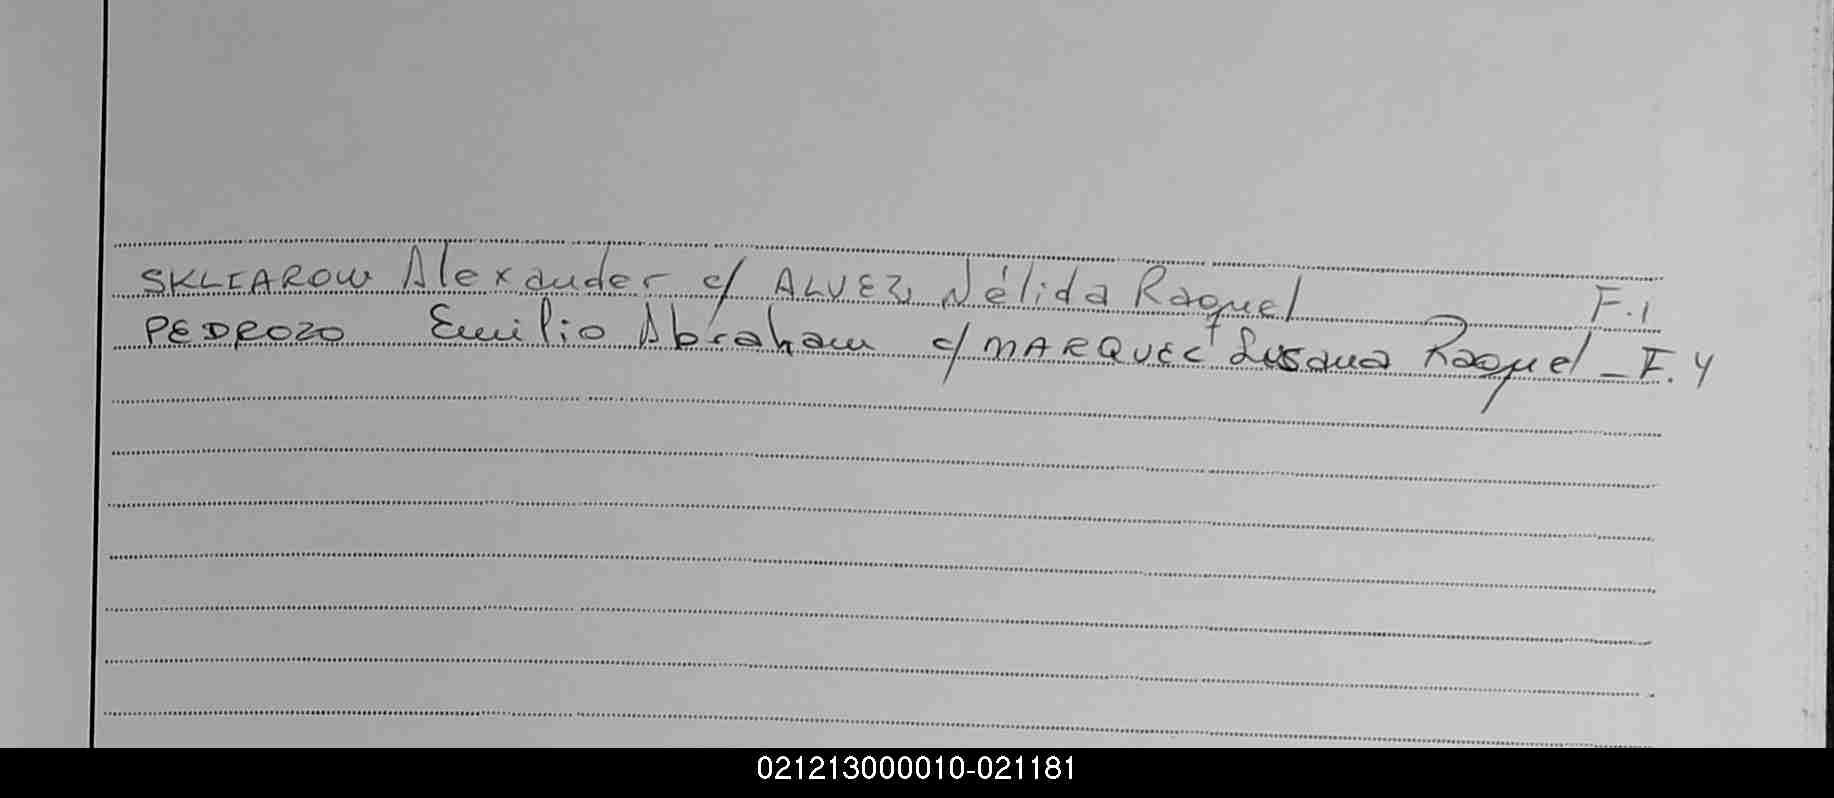 SKLIAROW Alexander c/ ALVEZ, Nélida Raquel F.1
PEDROZO Emilio Abraham c/ MARQUEC Susana Raquel _ F.4
021213000010-021181